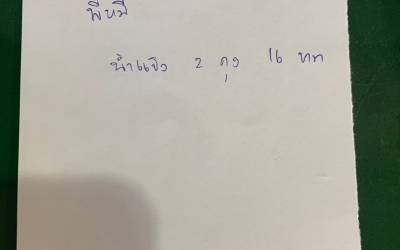 พี่หมี
น้ำแข็ง 2 ถุง 16 บาท